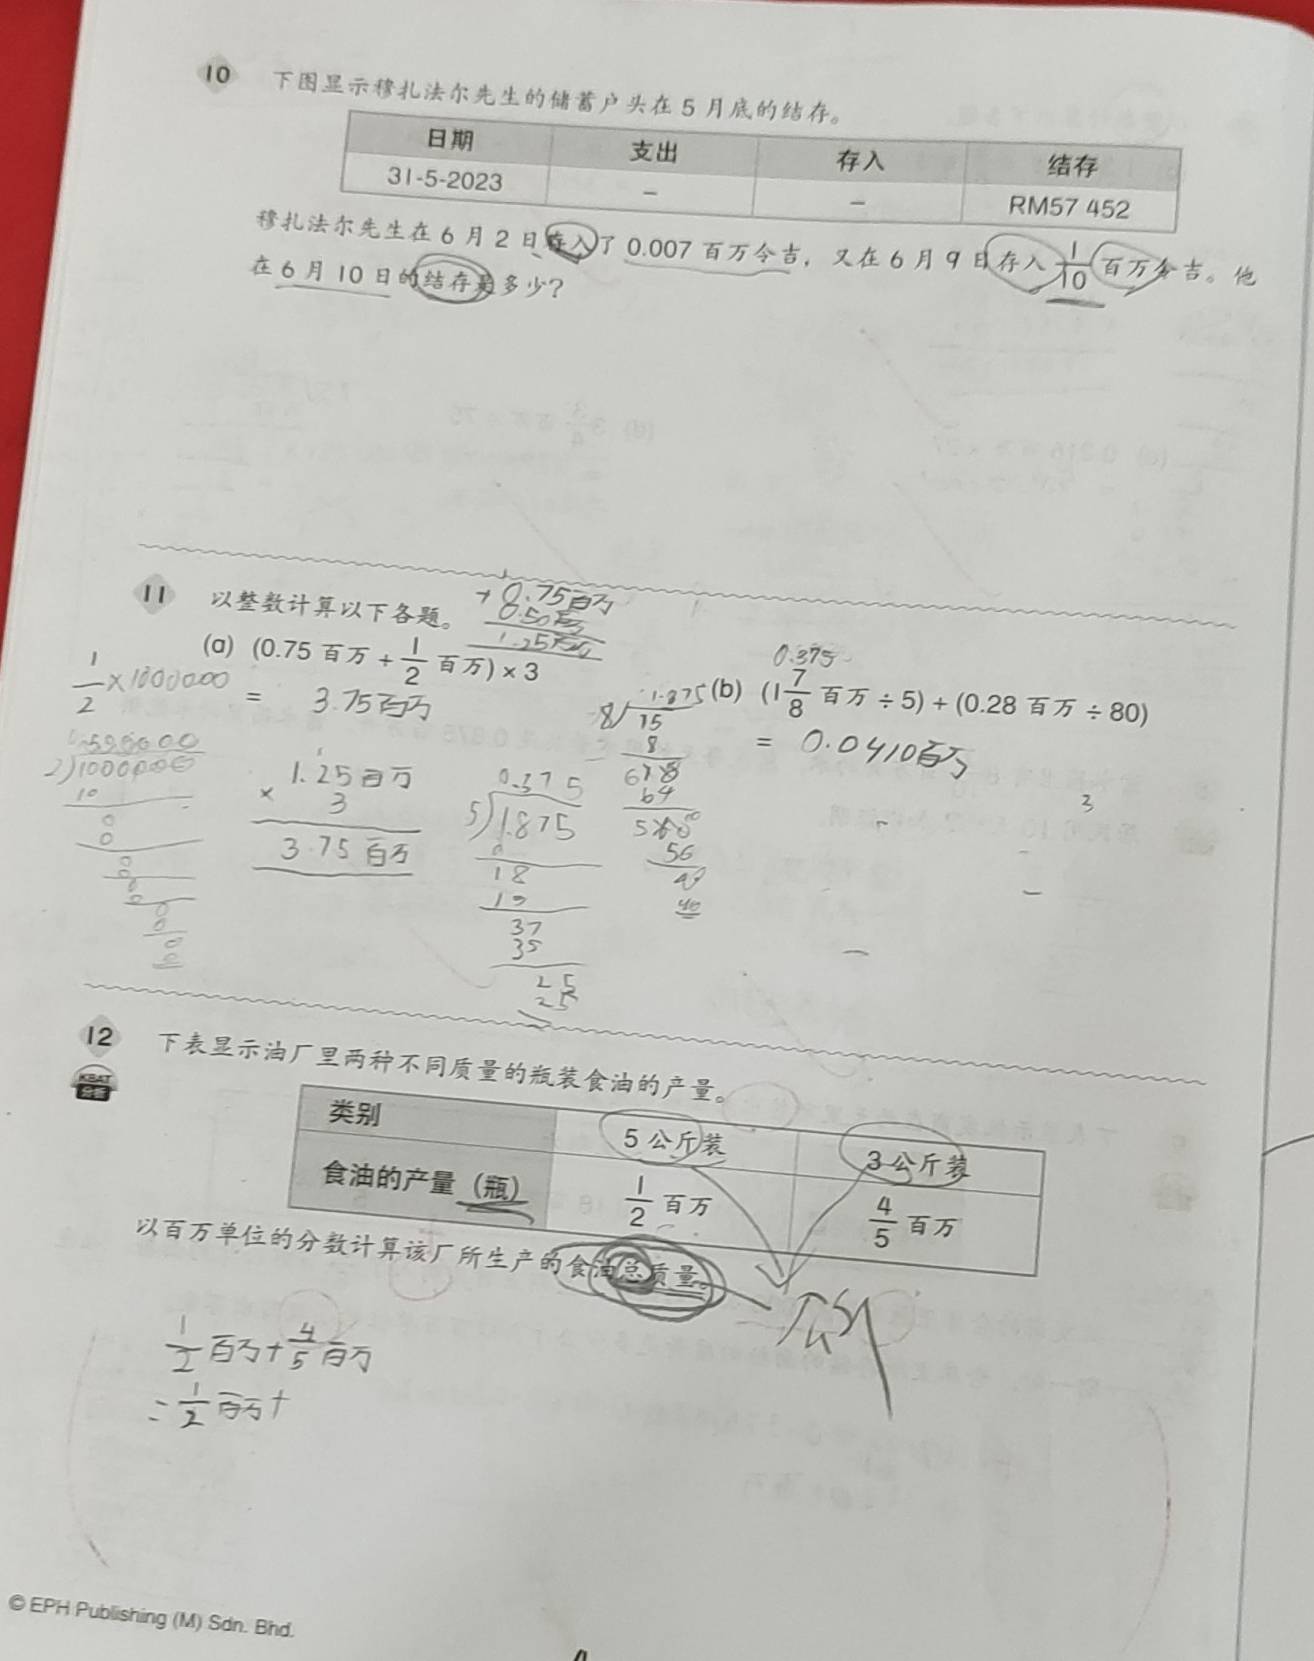 10 下图显示穆扎法尔先生的储蓄户头在 5 月底的结存。
日期 支出 存入 结存
31-5-2023 – – RM57 452
穆扎法尔先生在 6 月 2 日存入了 0.007 百万令吉，又在 6 月 9 日存入 1/10 百万令吉。他
在 6 月 10 日的结存是多少？
11 以整数计算以下各题。
+ 0.75百万
0.50百万
1.25百万
(a) (0.75 百万 + 1/2 百万) × 3
1/2 × 1000000
= 3.75百万
500000
2)1000000
10
0
0
0
0
0
0
0
0
0
1.25百万
× 3
3.75百万
0.375
5)1.875
0
18
15
37
35
25
25
1.875
8)15
8
64
56
40
40
0.375
(b) (1 7/8 百万 ÷ 5) + (0.28 百万 ÷ 80)
= 0.0410百万
3
12 下表显示油厂里两种不同质量的瓶装食油的产量。
KBAT
分析
类别 5 公斤装 3 公斤装
食油的产量（瓶） 1/2 百万 4/5 百万
以百万单位的分数计算该厂所生产的食油总质量。
1/2 百万 + 4/5 百万
= 1/2 百万 +
© EPH Publishing (M) Sdn. Bhd.